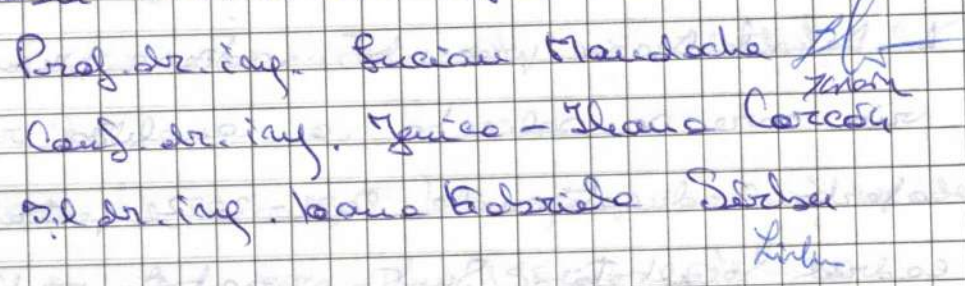 Prof. dr. ing. Lucian Mandache
Conf. dr. ing. Jenica-Ileana Corcău
Ș.l. dr. ing. Ioana Gabriela Sîrbu